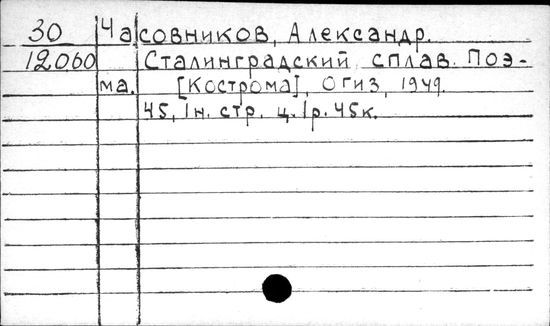 30 Часовников, Александр.
12060 Сталинградский сплав. Поэ-
ма. [Кострома], Огиз, 1949.
45, 1н. стр. ц. 1р. 45к.